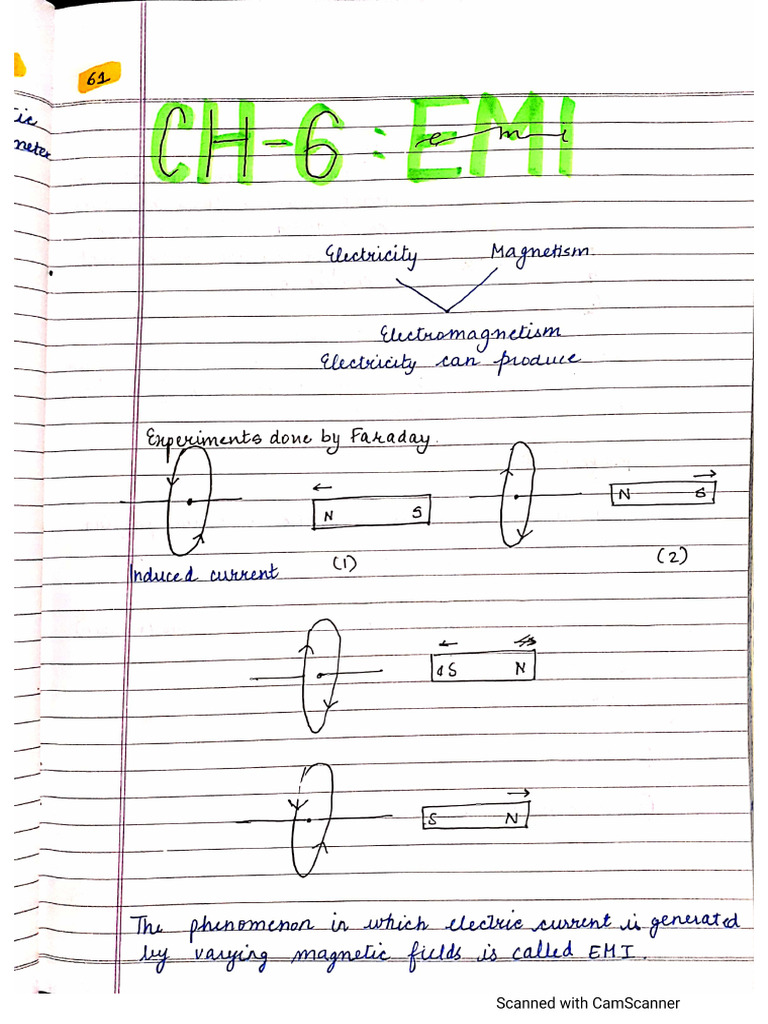 61
tic
meter
CH-6: EMI
Electricity Magnetism
Electromagnetism
Electricity can produce
Experiments done by Faraday.
N S N S
Induced current (1) (2)
S N
S N
The phenomenon in which electric current is generated
by varying magnetic fields is called EMI.
Scanned with CamScanner